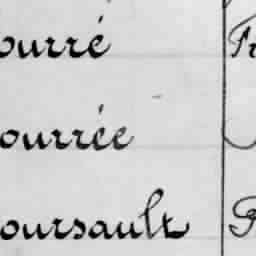 ourré Fr
ourrée
oursault